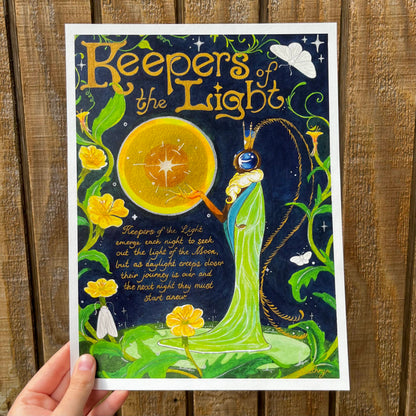 Keepers of
the Light
Keepers of the Light
emerge each night to seek
out the light of the Moon,
but as daylight creeps closer
their journey is over and
the next night they must
start anew